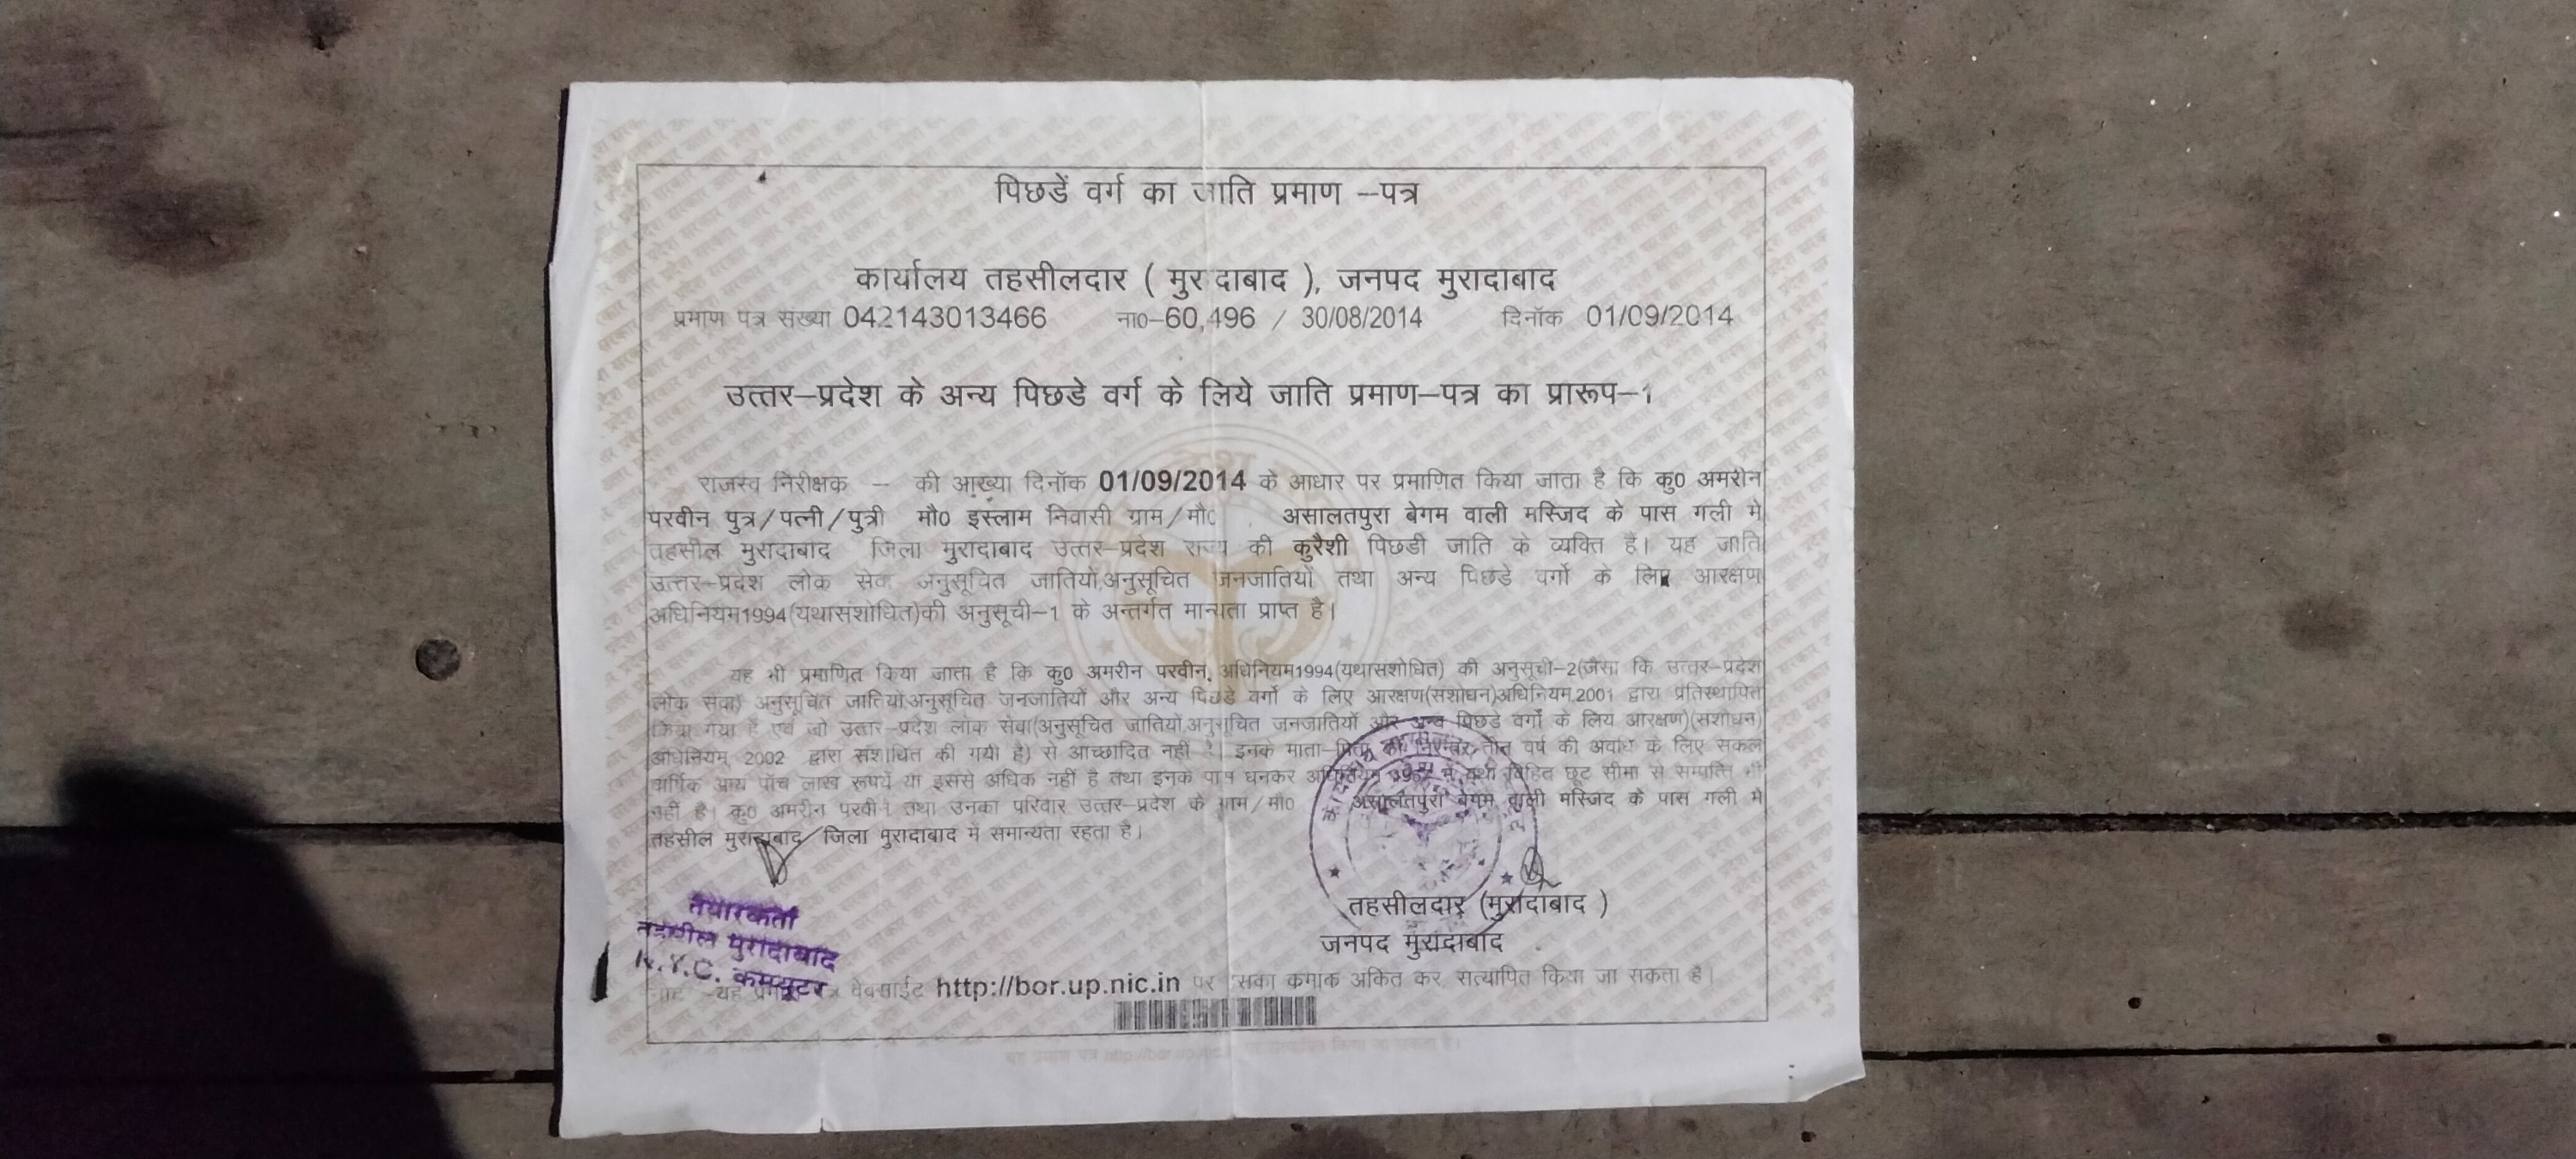 पिछडें वर्ग का जाति प्रमाण –पत्र
कार्यालय तहसीलदार ( मुर दाबाद ), जनपद मुरादाबाद
प्रमाण पत्र संख्या 042143013466 ना0–60,496 / 30/08/2014 दिनॉक 01/09/2014
उत्तर–प्रदेश के अन्य पिछडे वर्ग के लिये जाति प्रमाण–पत्र का प्रारूप–1
राजस्व निरीक्षक – की आख्या दिनॉक 01/09/2014 के आधार पर प्रमाणित किया जाता है कि कु0 अमरीन
परवीन पुत्र/पत्नी/पुत्री मौ0 इस्लाम निवासी ग्राम/मौ0 असालतपुरा बेगम वाली मस्जिद के पास गली मे
तहसील मुरादाबाद जिला मुरादाबाद उत्तर–प्रदेश राज्य की कुरैशी पिछडी जाति के व्यक्ति है। यह जाति
उत्तर–प्रदेश लोक सेवा अनुसूचित जातियो,अनुसूचित जनजातियों तथा अन्य पिछडे वर्गो के लिए आरक्षण
अधिनियम1994(यथासंशोधित)की अनुसूची–1 के अन्तर्गत मान्यता प्राप्त है।
यह भी प्रमाणित किया जाता है कि कु0 अमरीन परवीन, अधिनियम1994(यथासशोधित) की अनुसूची–2(जैसा कि उत्तर–प्रदेश
लोक सेवा) अनुसूचित जातियो,अनुसूचित जनजातियों और अन्य पिछडे वर्गो के लिए आरक्षण(संशोधन)अधिनियम,2001 द्वारा प्रतिस्थापित
किया गया है एवं जो उत्तर–प्रदेश लोक सेवा(अनुसूचित जातियों,अनुसूचित जनजातियों और अन्य पिछडे वर्गो के लिय आरक्षण)(सशोधन)
अधिनियम, 2002 द्वारा संशोधित की गयी है) से आच्छादित नहीं है। इनके माता–पिता की निरन्तर तीन वर्ष की अवधि के लिए सकल
वार्षिक आय पॉच लाख रूपये या इससे अधिक नहीं है तथा इनके पास धनकर अधिनियम 1957 में यथा विहित छूट सीमा से सम्पत्ति भी
नहीं है। कु0 अमरीन परवीन तथा उनका परिवार उत्तर–प्रदेश के ग्राम/मौ0 असालतपुरा बेगम वाली मस्जिद के पास गली मे
तहसील मुरादाबाद/जिला मुरादाबाद में समान्यता रहता है।
तैयारकर्ता
तहसील मुरादाबाद
कम्प्यूटर
तहसीलदार (मुरादाबाद )
जनपद मुरादाबाद
नोट –यह वेबसाईट http://bor.up.nic.in पर इसका कमाक अकित कर, सत्यापित किया जा सकता है।